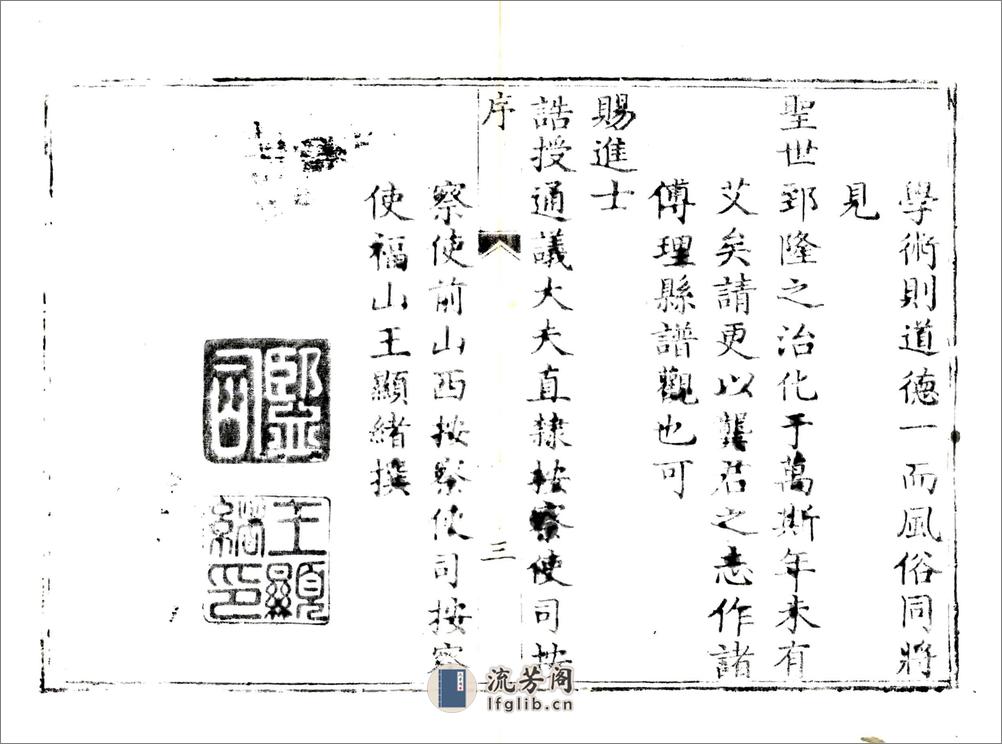 學術則道德一而風俗同將
見
聖世郅隆之治化于萬斯年未有
艾矣請更以龔君之志作諸
傅理縣譜觀也可
賜進士
誥授通議大夫直隸按察使司按
察使前山西按察使司按察
使福山王顯緒撰
序
三
王顯
緒印
流芳阁
lfglib.cn